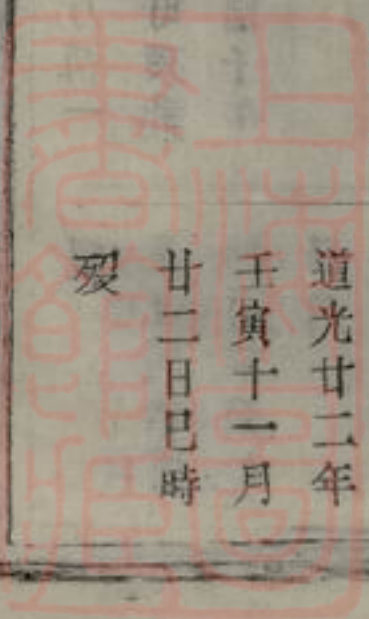 道光廿二年
壬寅十一月
廿二日巳時
歿